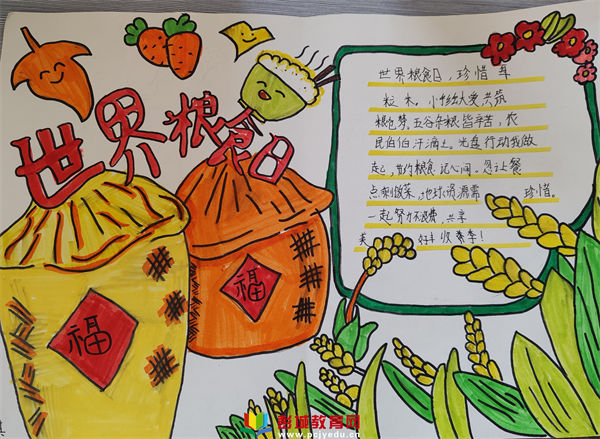 世界粮食日
福
福
世界粮食日，珍惜每
粒米。小
粮仓梦，五谷杂粮皆辛苦，农
民伯伯汗滴土。光盘行动我做
起，节约粮食记心间。
点剩饭菜，地球资源需 珍惜。
一起努力不浪费，共享
美 好丰收季！
彭城教育网
www.pcjyedu.cn